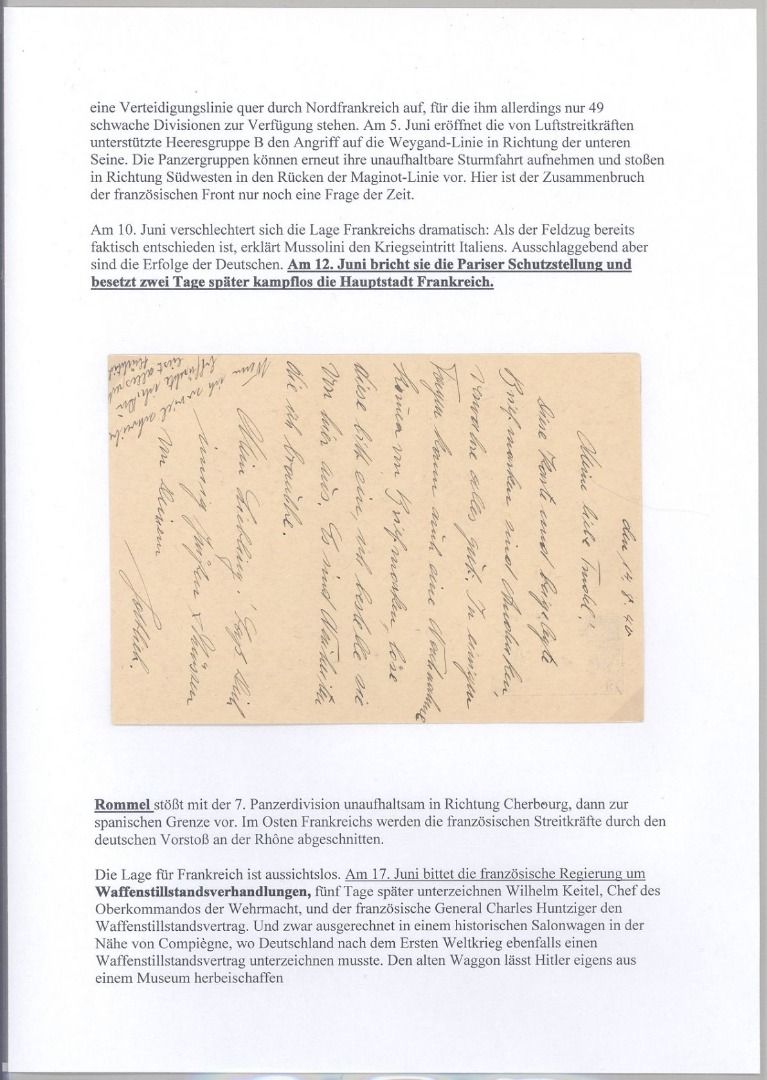 eine Verteidigungslinie quer durch Nordfrankreich auf, für die ihm allerdings nur 49
schwache Divisionen zur Verfügung stehen. Am 5. Juni eröffnet die von Luftstreitkräften
unterstützte Heeresgruppe B den Angriff auf die Weygand-Linie in Richtung der unteren
Seine. Die Panzergruppen können erneut ihre unaufhaltbare Sturmfahrt aufnehmen und stoßen
in Richtung Südwesten in den Rücken der Maginot-Linie vor. Hier ist der Zusammenbruch
der französischen Front nur noch eine Frage der Zeit.
Am 10. Juni verschlechtert sich die Lage Frankreichs dramatisch: Als der Feldzug bereits
faktisch entschieden ist, erklärt Mussolini den Kriegseintritt Italiens. Ausschlaggebend aber
sind die Erfolge der Deutschen. Am 12. Juni bricht sie die Pariser Schutzstellung und
besetzt zwei Tage später kampflos die Hauptstadt Frankreich.
den 14.8.40
Meine liebe Trudel!
Deine Karte und beigelegte
Briefmarken sind
alles gut. In einigen
Tagen kann auch eine Nachnahme
kommen von Briefmarken, löse
diese bitte ein, ich bestelle sie
von hier aus. Es sind Neuheiten
die ich brauche.
Mein Liebling! Sei
innig gegrüßt & 
von Deinem
Rommel stößt mit der 7. Panzerdivision unaufhaltsam in Richtung Cherbourg, dann zur
spanischen Grenze vor. Im Osten Frankreichs werden die französischen Streitkräfte durch den
deutschen Vorstoß an der Rhône abgeschnitten.
Die Lage für Frankreich ist aussichtslos. Am 17. Juni bittet die französische Regierung um
Waffenstillstandsverhandlungen, fünf Tage später unterzeichnen Wilhelm Keitel, Chef des
Oberkommandos der Wehrmacht, und der französische General Charles Huntziger den
Waffenstillstandsvertrag. Und zwar ausgerechnet in einem historischen Salonwagen in der
Nähe von Compiègne, wo Deutschland nach dem Ersten Weltkrieg ebenfalls einen
Waffenstillstandsvertrag unterzeichnen musste. Den alten Waggon lässt Hitler eigens aus
einem Museum herbeischaffen